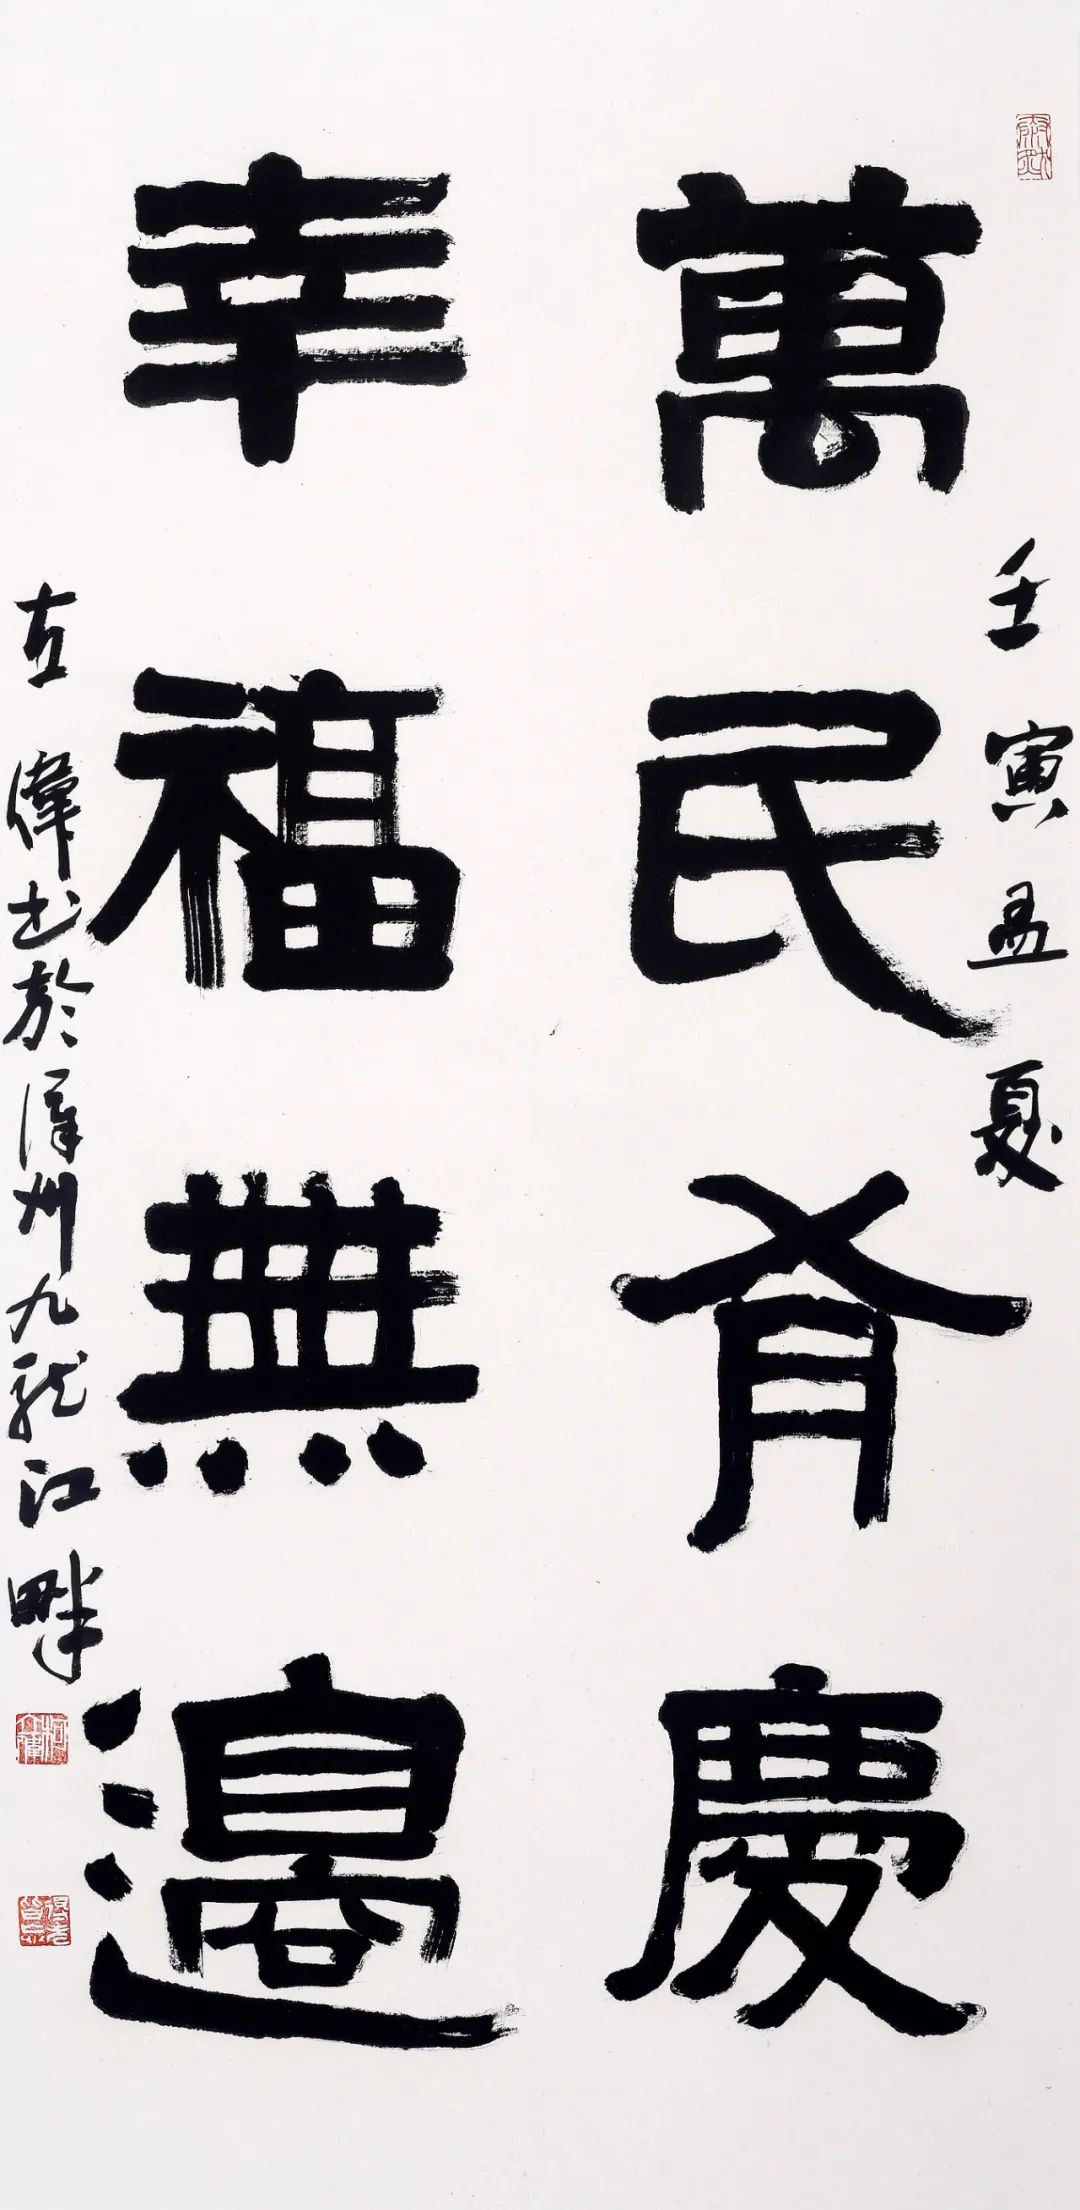 壬寅孟夏
萬民有慶
幸福無邊
左偉书於漳州九龙江畔